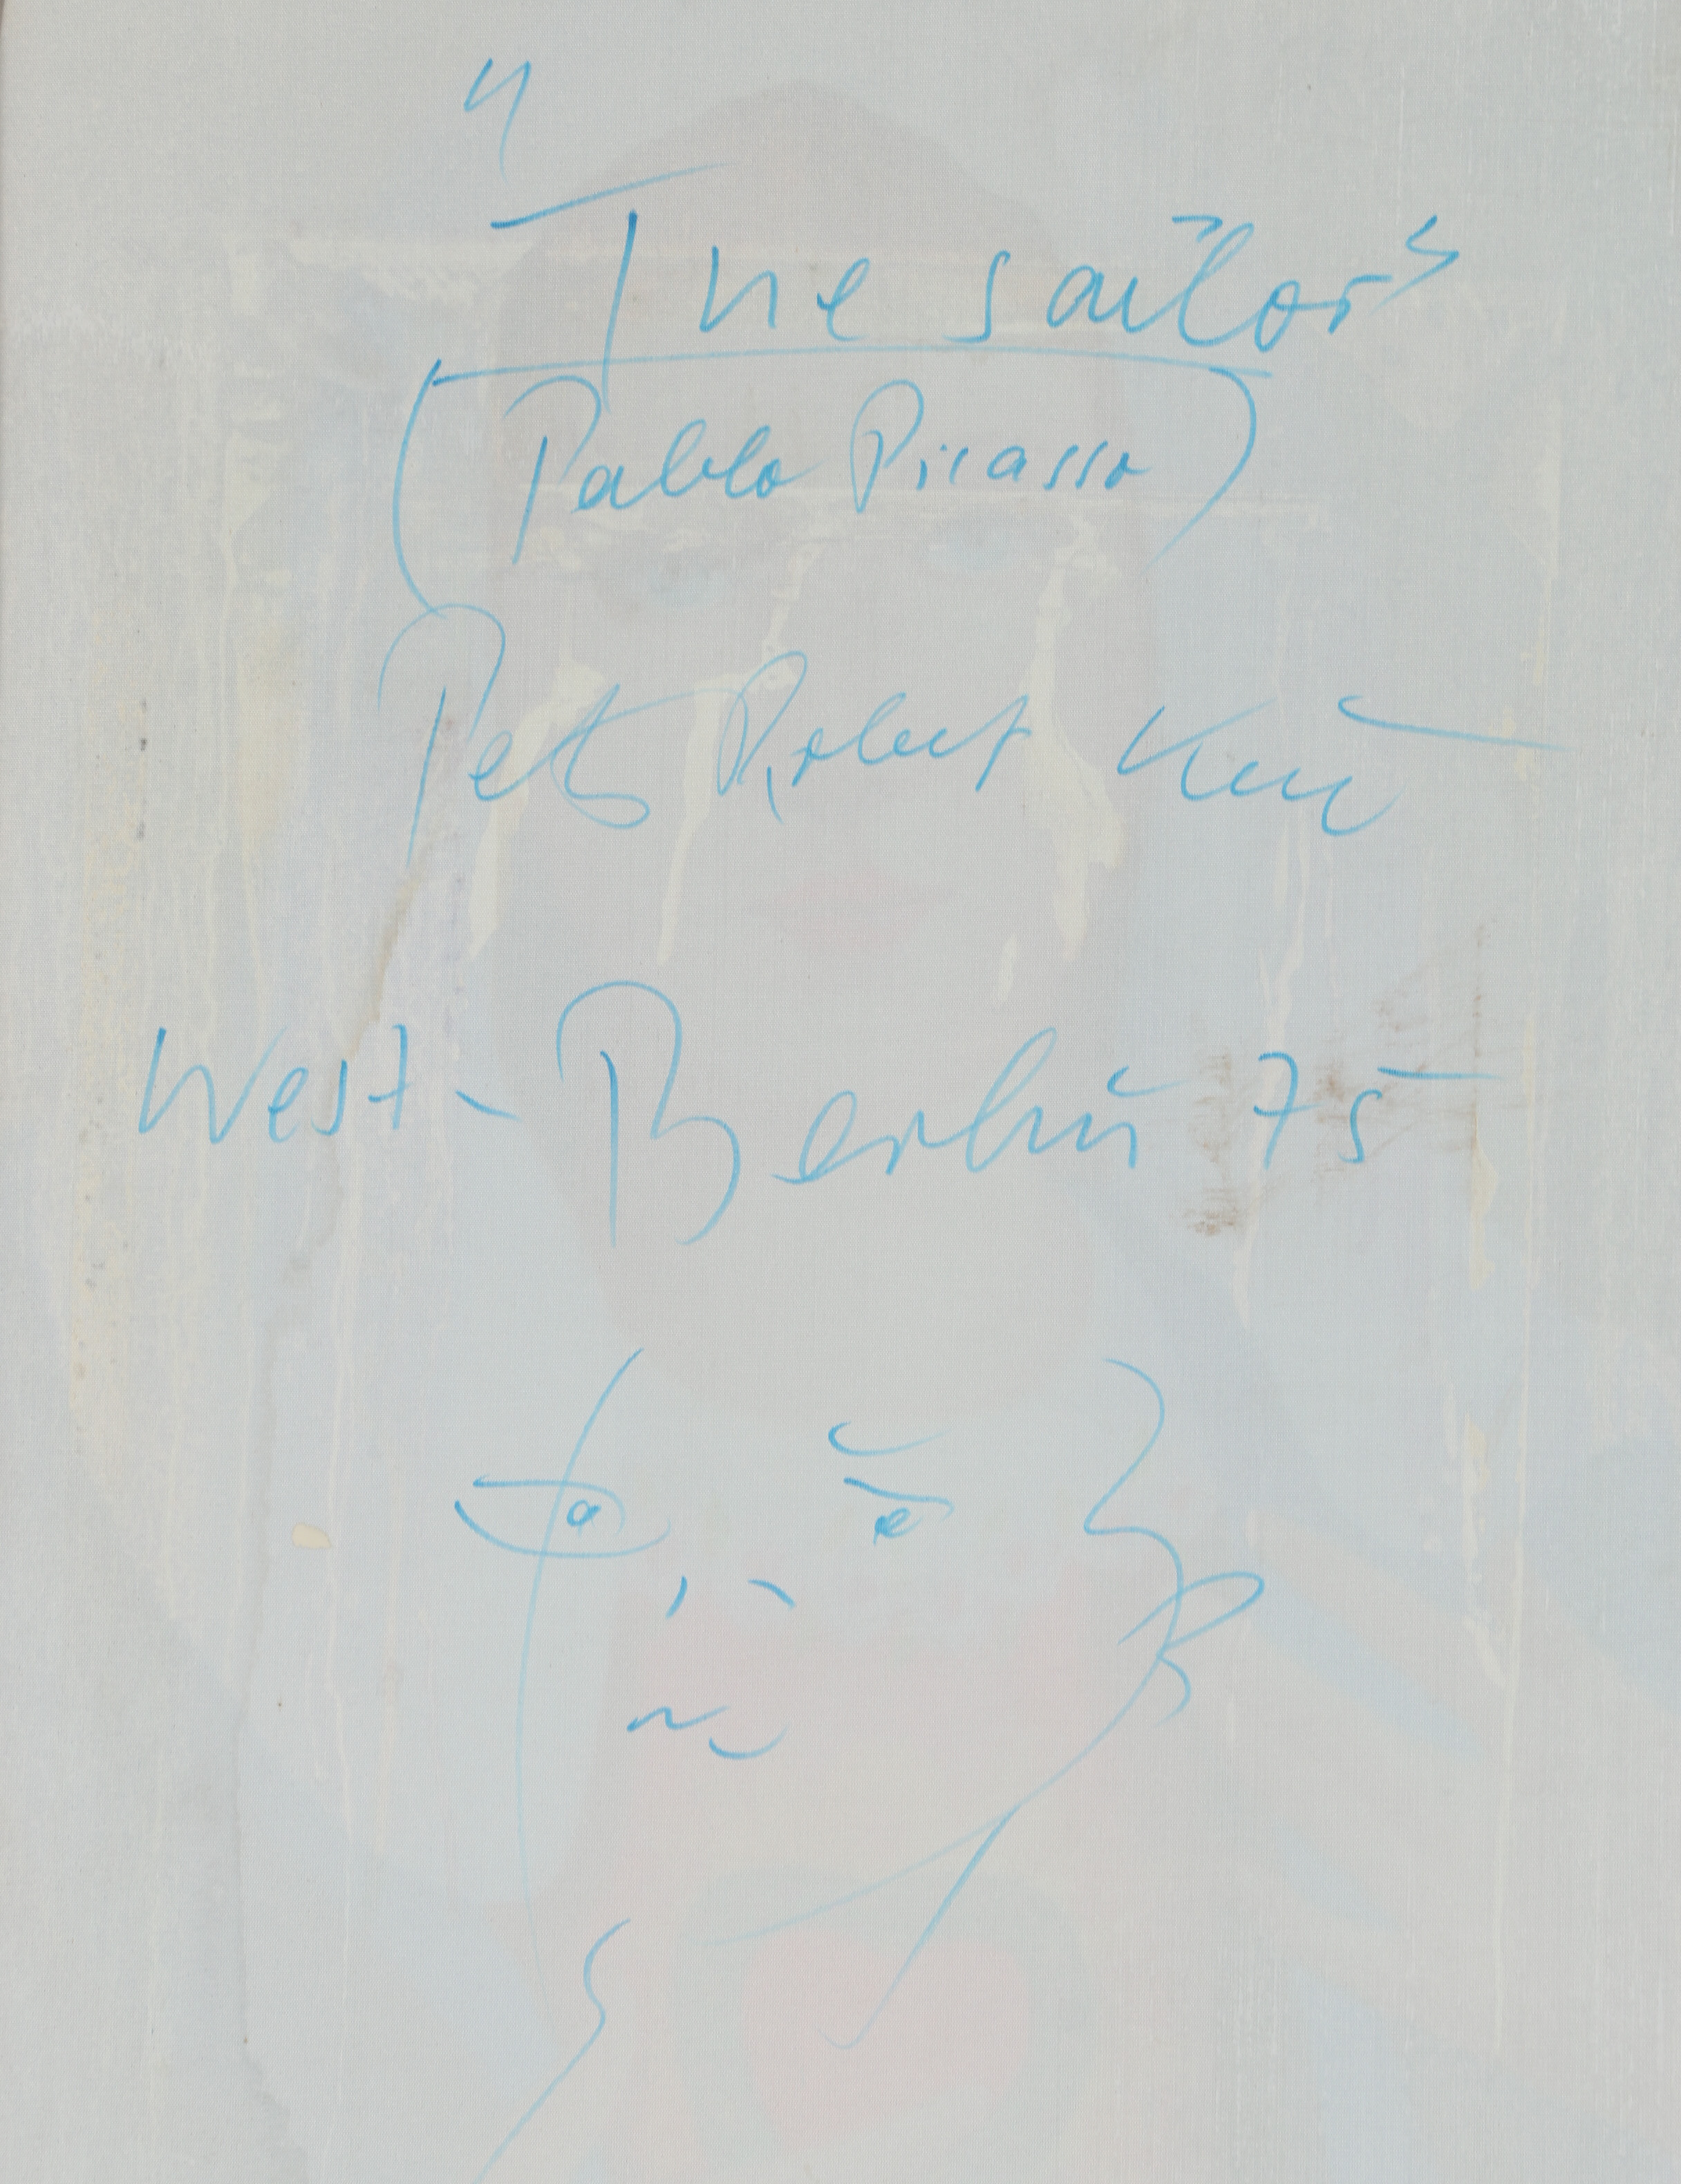 "The sailor"
(Pablo Picasso)
Peter Robert Keil
West-Berlin 75